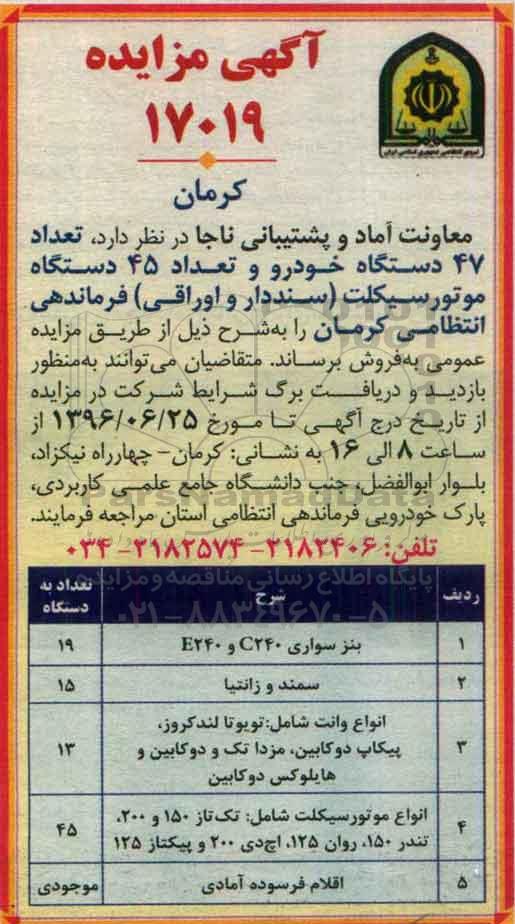 آگهی مزایده
۱۷۰۱۹
کرمان
نیروی انتظامی جمهوری اسلامی ایران
معاونت آماد و پشتیبانی ناجا در نظر دارد، تعداد
۴۷ دستگاه خودرو و تعداد ۴۵ دستگاه
موتورسیکلت (سنددار و اوراقی) فرماندهی
انتظامی کرمان را به‌شرح ذیل از طریق مزایده
عمومی به‌فروش برساند. متقاضیان می‌توانند به‌منظور
بازدید و دریافت برگ شرایط شرکت در مزایده
از تاریخ درج آگهی تا مورخ ۱۳۹۶/۰۶/۲۵ از
ساعت ۸ الی ۱۶ به نشانی: کرمان- چهارراه نیکزاد،
بلوار ابوالفضل، جنب دانشگاه جامع علمی کاربردی،
پارک خودرویی فرماندهی انتظامی استان مراجعه فرمایند.
تلفن: ۲۱۸۲۴۰۶- ۲۱۸۲۵۷۴- ۰۳۴
ParsNamadData
پایگاه اطلاع رسانی مناقصه و مزایده
۰۲۱-۸۸۳۴۹۶۷۰-۵
ردیف شرح تعداد به دستگاه
۱ بنز سواری C۲۴۰ و E۲۴۰ ۱۹
۲ سمند و زانتیا ۱۵
۳ انواع وانت شامل:تویوتا لندکروز،
پیکاپ دوکابین، مزدا تک و دوکابین و
هایلوکس دوکابین ۱۳
۴ انواع موتورسیکلت شامل: تک‌تاز ۱۵۰ و ۲۰۰،
تندر ۱۵۰، روان ۱۲۵، اچ‌دی ۲۰۰ و پیکتاز ۱۲۵ ۴۵
۵ اقلام فرسوده آمادی موجودی